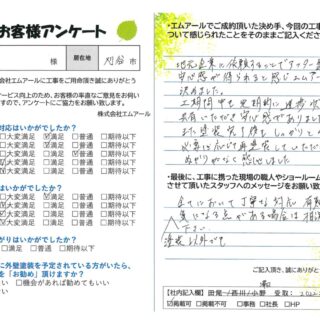 お客様アンケート
様
居住地
刈谷市
会社エムアールに工事をご用命頂き誠にありがとう
ービス向上のため、お客様の率直なご意見をお伺い
ますので、アンケートにご協力をお願い致します。
株式会社エムアール
対応はいかがでしたか?
□大変満足 ☑満足 □普通 □期待以下
□大変満足 □満足 □普通 □期待以下
□大変満足 □満足 □普通 □期待以下
はいかがでしたか?
がりはいかがでしたか?
足 □満足 □普通 □期待以下
に外壁塗装を予定されている方がいたら、
を「お勧め」頂けますか?
い □機会があれば勧めてもいい
ない
・エムアールでご成約頂いた決め手、今回の工事
ついて感じられたことをそのままご記入ください
地元企業に依頼することでアフター
安心感が得られると感じエムアール
決めました。
工期間中も定期的に進捗状
共有いただき安心感でありまし
また塗装完了後もしっかりと
必要に応じて再塗装していただ
ぬかりがなく感じました
・最後に、工事に携った現場の職人やショールーム
させて頂いたスタッフへのメッセージをお願い致
全てにおいて丁寧な対応、有難
気になる点がある場合は相談
下さい。
塗装以外でも
ご記入頂き、誠にありがと
【社内記入欄】田尾・西川・水野 受取:2022.
☑掲載可 □掲載不可 □事務 □社長 □HP